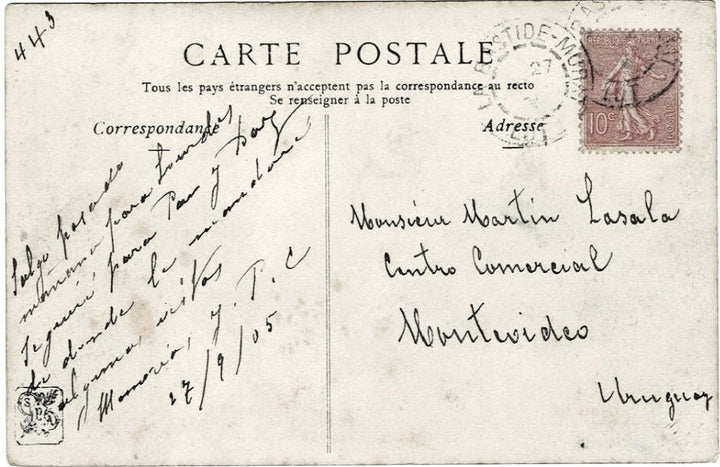 443
CARTE POSTALE
Tous les pays étrangers n'acceptent pas la correspondance au recto
Se renseigner à la poste
Correspondance
Adresse
LABASTIDE-MURAT
27
LOT
10c
Salgo pasado
mañana para Lourdes
Seguiré para Pau y
de donde le mandaré
alguna vistas
Memorias, J. P. C
27/9/05
Monsieur Martin Lasala
Centro Comercial
Montevideo
Uruguay